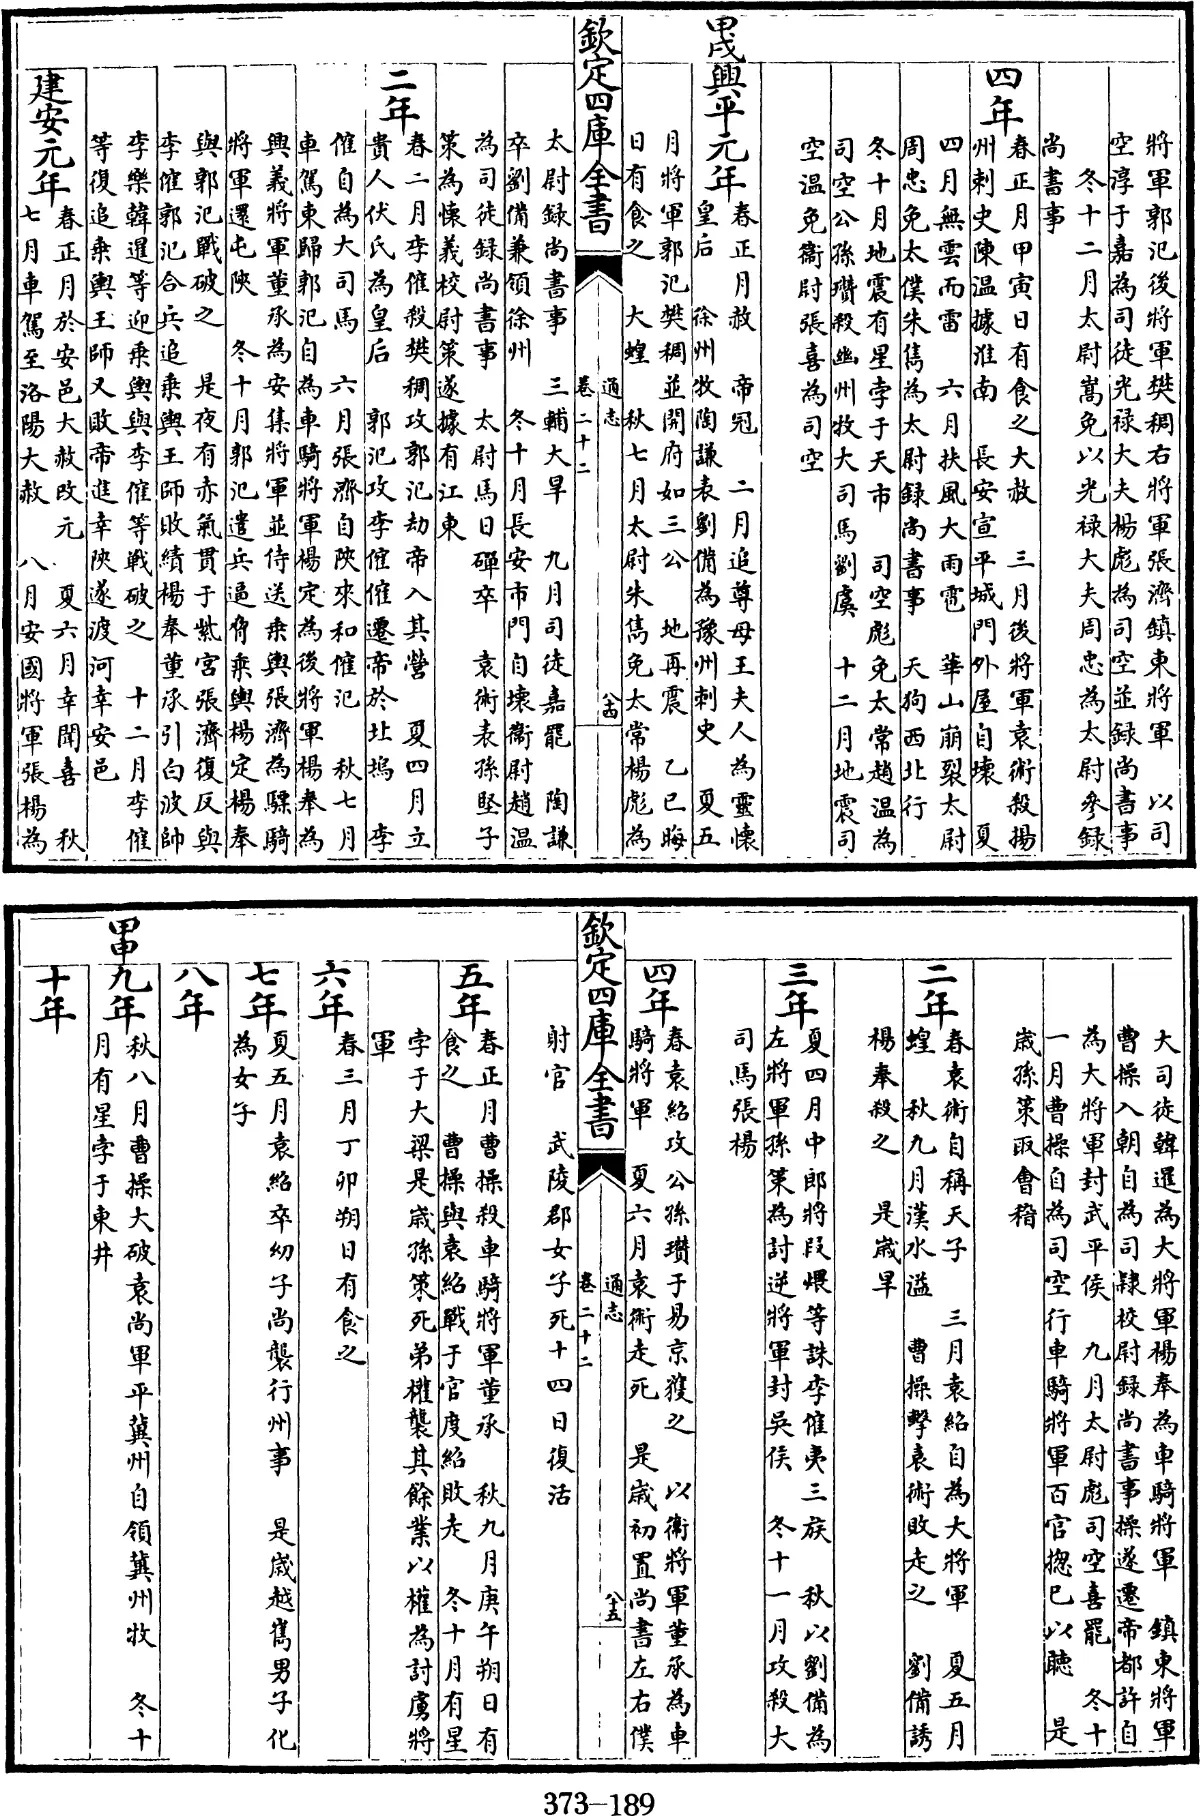 將軍郭汜後將軍樊稠右將軍張濟鎮東將軍 以司
空淳于嘉為司徒光禄大夫楊彪為司空並録尚書事
冬十二月太尉嵩免以光禄大夫周忠為太尉參録
尚書事
四年
春正月甲寅日有食之大赦 三月後將軍袁術殺揚
州刺史陳温據淮南 長安宣平城門外屋自壞 夏
四月無雲而雷 六月扶風大雨雹 華山崩裂太尉
周忠免太僕朱儁為太尉録尚書事 天狗西北行
冬十月地震有星孛于天市 司空彪免太常趙温為
司空公孫瓚殺幽州牧大司馬劉虞 十二月地震司
空温免衛尉張喜為司空
甲戌興平元年
春正月赦 帝冠 二月追尊母王夫人為靈懷
皇后 徐州牧陶謙表劉備為豫州刺史 夏五
月將軍郭汜樊稠並開府如三公 地再震 乙巳晦
日有食之 大蝗 秋七月太尉朱儁免太常楊彪為
欽定四庫全書
通志
卷二十二
八十四
太尉録尚書事 三輔大旱 九月司徒嘉罷 陶謙
卒劉備兼領徐州 冬十月長安市門自壊衛尉趙温
為司徒録尚書事 太尉馬日磾卒 袁術表孫堅子
策為懐義校尉策遂據有江東
二年
春二月李傕殺樊稠攻郭汜劫帝入其營 夏四月立
貴人伏氏為皇后 郭汜攻李傕傕遷帝於北塢 李
傕自為大司馬 六月張濟自陜來和傕汜 秋七月
車駕東歸郭汜自為車騎將軍楊定為後將軍楊奉為
興義將軍董承為安集將軍並侍送乘輿張濟為驃騎
將軍還屯陜 冬十月郭汜遣兵逼脅乘輿楊定楊奉
與郭汜戰破之 是夜有赤氣貫于紫宮張濟復反與
李傕郭汜合兵追乘輿王師敗績楊奉董承引白波帥
李樂韓暹等迎乘輿與李傕等戰破之 十二月李傕
等復追乘輿王師又敗帝進幸陜遂渡河幸安邑
建安元年
春正月於安邑大赦改元 夏六月幸聞喜 秋
七月車駕至洛陽大赦 八月安國將軍張楊為
大司徒韓暹為大將軍楊奉為車騎將軍 鎮東將軍
曹操入朝自為司隷校尉録尚書事操遂遷帝都許自
為大將軍封武平侯 九月太尉彪司空喜罷 冬十
一月曹操自為司空行車騎將軍百官揔已以聽 是
歲孫策取會稽
二年
春袁術自稱天子 三月袁紹自為大將軍 夏五月
蝗 秋九月漢水溢 曹操擊袁術敗走之 劉備誘
楊奉殺之 是歲旱
三年
夏四月中郎將段煨等誅李傕夷三族 秋以劉備為
左將軍孫策為討逆將軍封吳侯 冬十一月攻殺大
司馬張楊
四年
春袁紹攻公孫瓚于易京獲之 以衛將軍董承為車
騎將軍 夏六月袁術走死 是歲初置尚書左右僕
欽定四庫全書
通志
卷二十二
八十五
射官 武陵郡女子死十四日復活
五年
春正月曹操殺車騎將軍董承 秋九月庚午朔日有
食之 曹操與袁紹戰于官度紹敗走 冬十月有星
孛于大梁是歲孫策死弟權襲其餘業以權為討虜將
軍
六年
春三月丁卯朔日有食之
七年
夏五月袁紹卒幼子尚襲行州事 是歲越嶲男子化
為女子
八年
甲申九年
秋八月曹操大破袁尚軍平冀州自領冀州牧 冬十
月有星孛于東井
十年
373-189